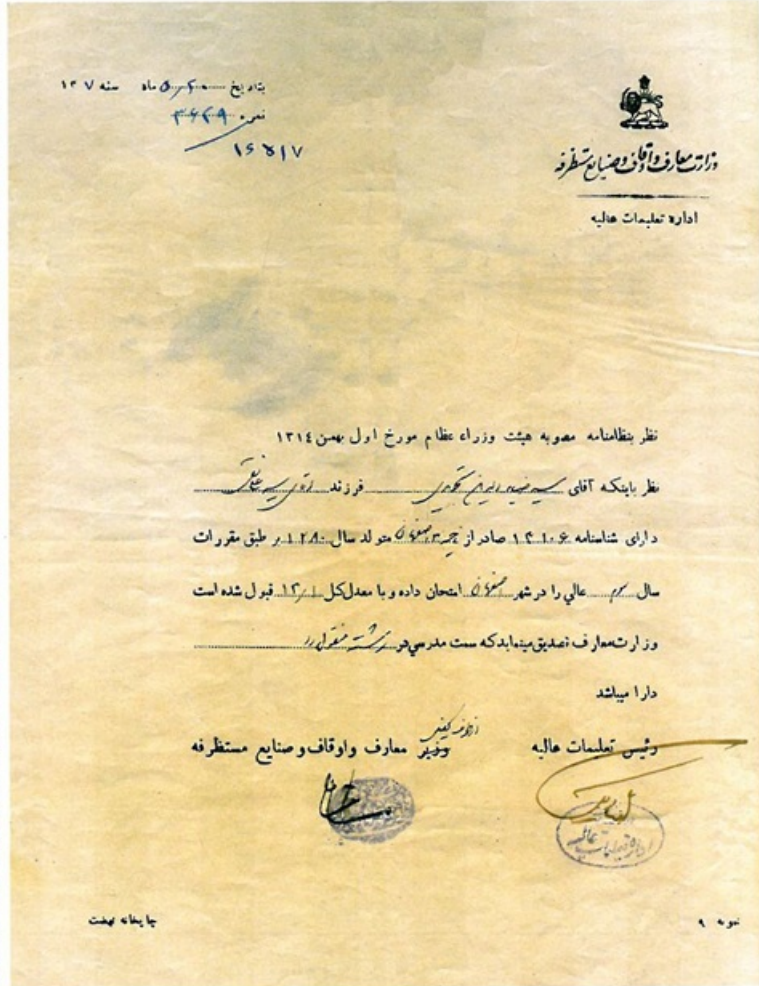 وزارت معارف و اوقاف و صنایع مستظرفه
اداره تعلیمات عالیه
بتاریخ ماه سنه ۱۳۷
نمره ۳۶۲۹
۱۶۵۱۷
نظر بنظامنامه مصوبه هیئت وزراء عظام مورخ اول بهمن ۱۳۱٤
نظر باینکه آقای سید ضیاء الدین فرزند آقای سید
دارای شناسنامه ۱۴۱۰۶ صادر از اصفهان متولد سال ۱۲۸۰ بر طبق مقررات
سال سوم عالی را در شهر اصفهان امتحان داده و با معدل کل ۱۳/۱ قبول شده است
وزارت معارف تصدیق مینماید که سمت مدرسی در رشته منقول را
دارا میباشد
رئیس تعلیمات عالیه
از طرف کفیل
وزیر معارف و اوقاف و صنایع مستظرفه
اداره تعلیمات عالیه
نمونه ۹
چاپخانه نهضت